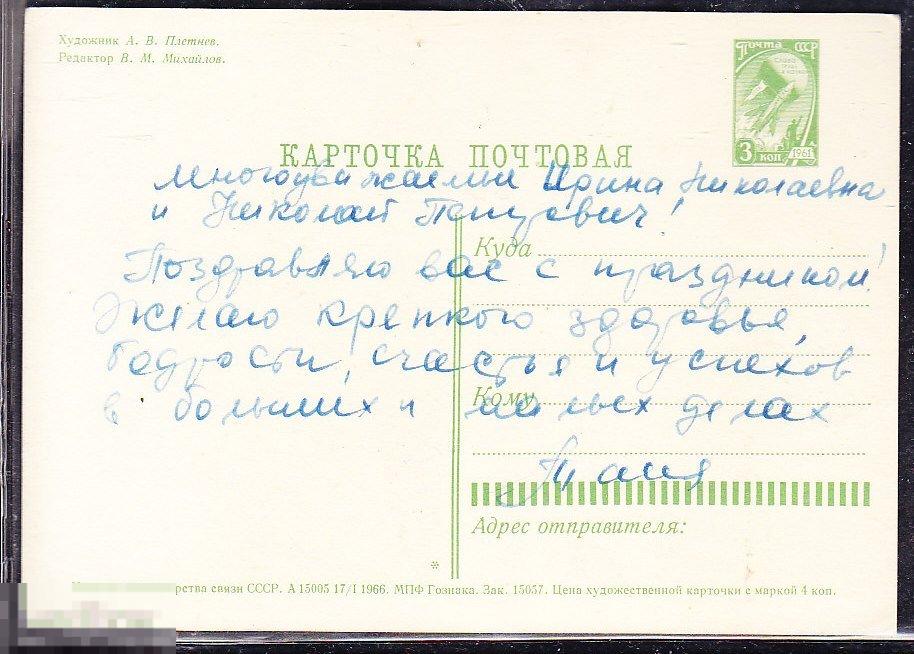 Художник А. В. Плетнев.
Редактор В. М. Михайлов.
Почта СССР
3 коп 1961
КАРТОЧКА ПОЧТОВАЯ
Многоуважаемые Ирина Николаевна
и Николай Петрович!
Куда
Поздравляю вас с праздником!
Желаю крепкого здоровья,
бодрости, счастья и успехов
Кому
в больших и малых делах
Таня
Адрес отправителя:
*
рства связи СССР. А 15005 17/I 1966. МПФ Гознака. Зак. 15057. Цена художественной карточки с маркой 4 коп.